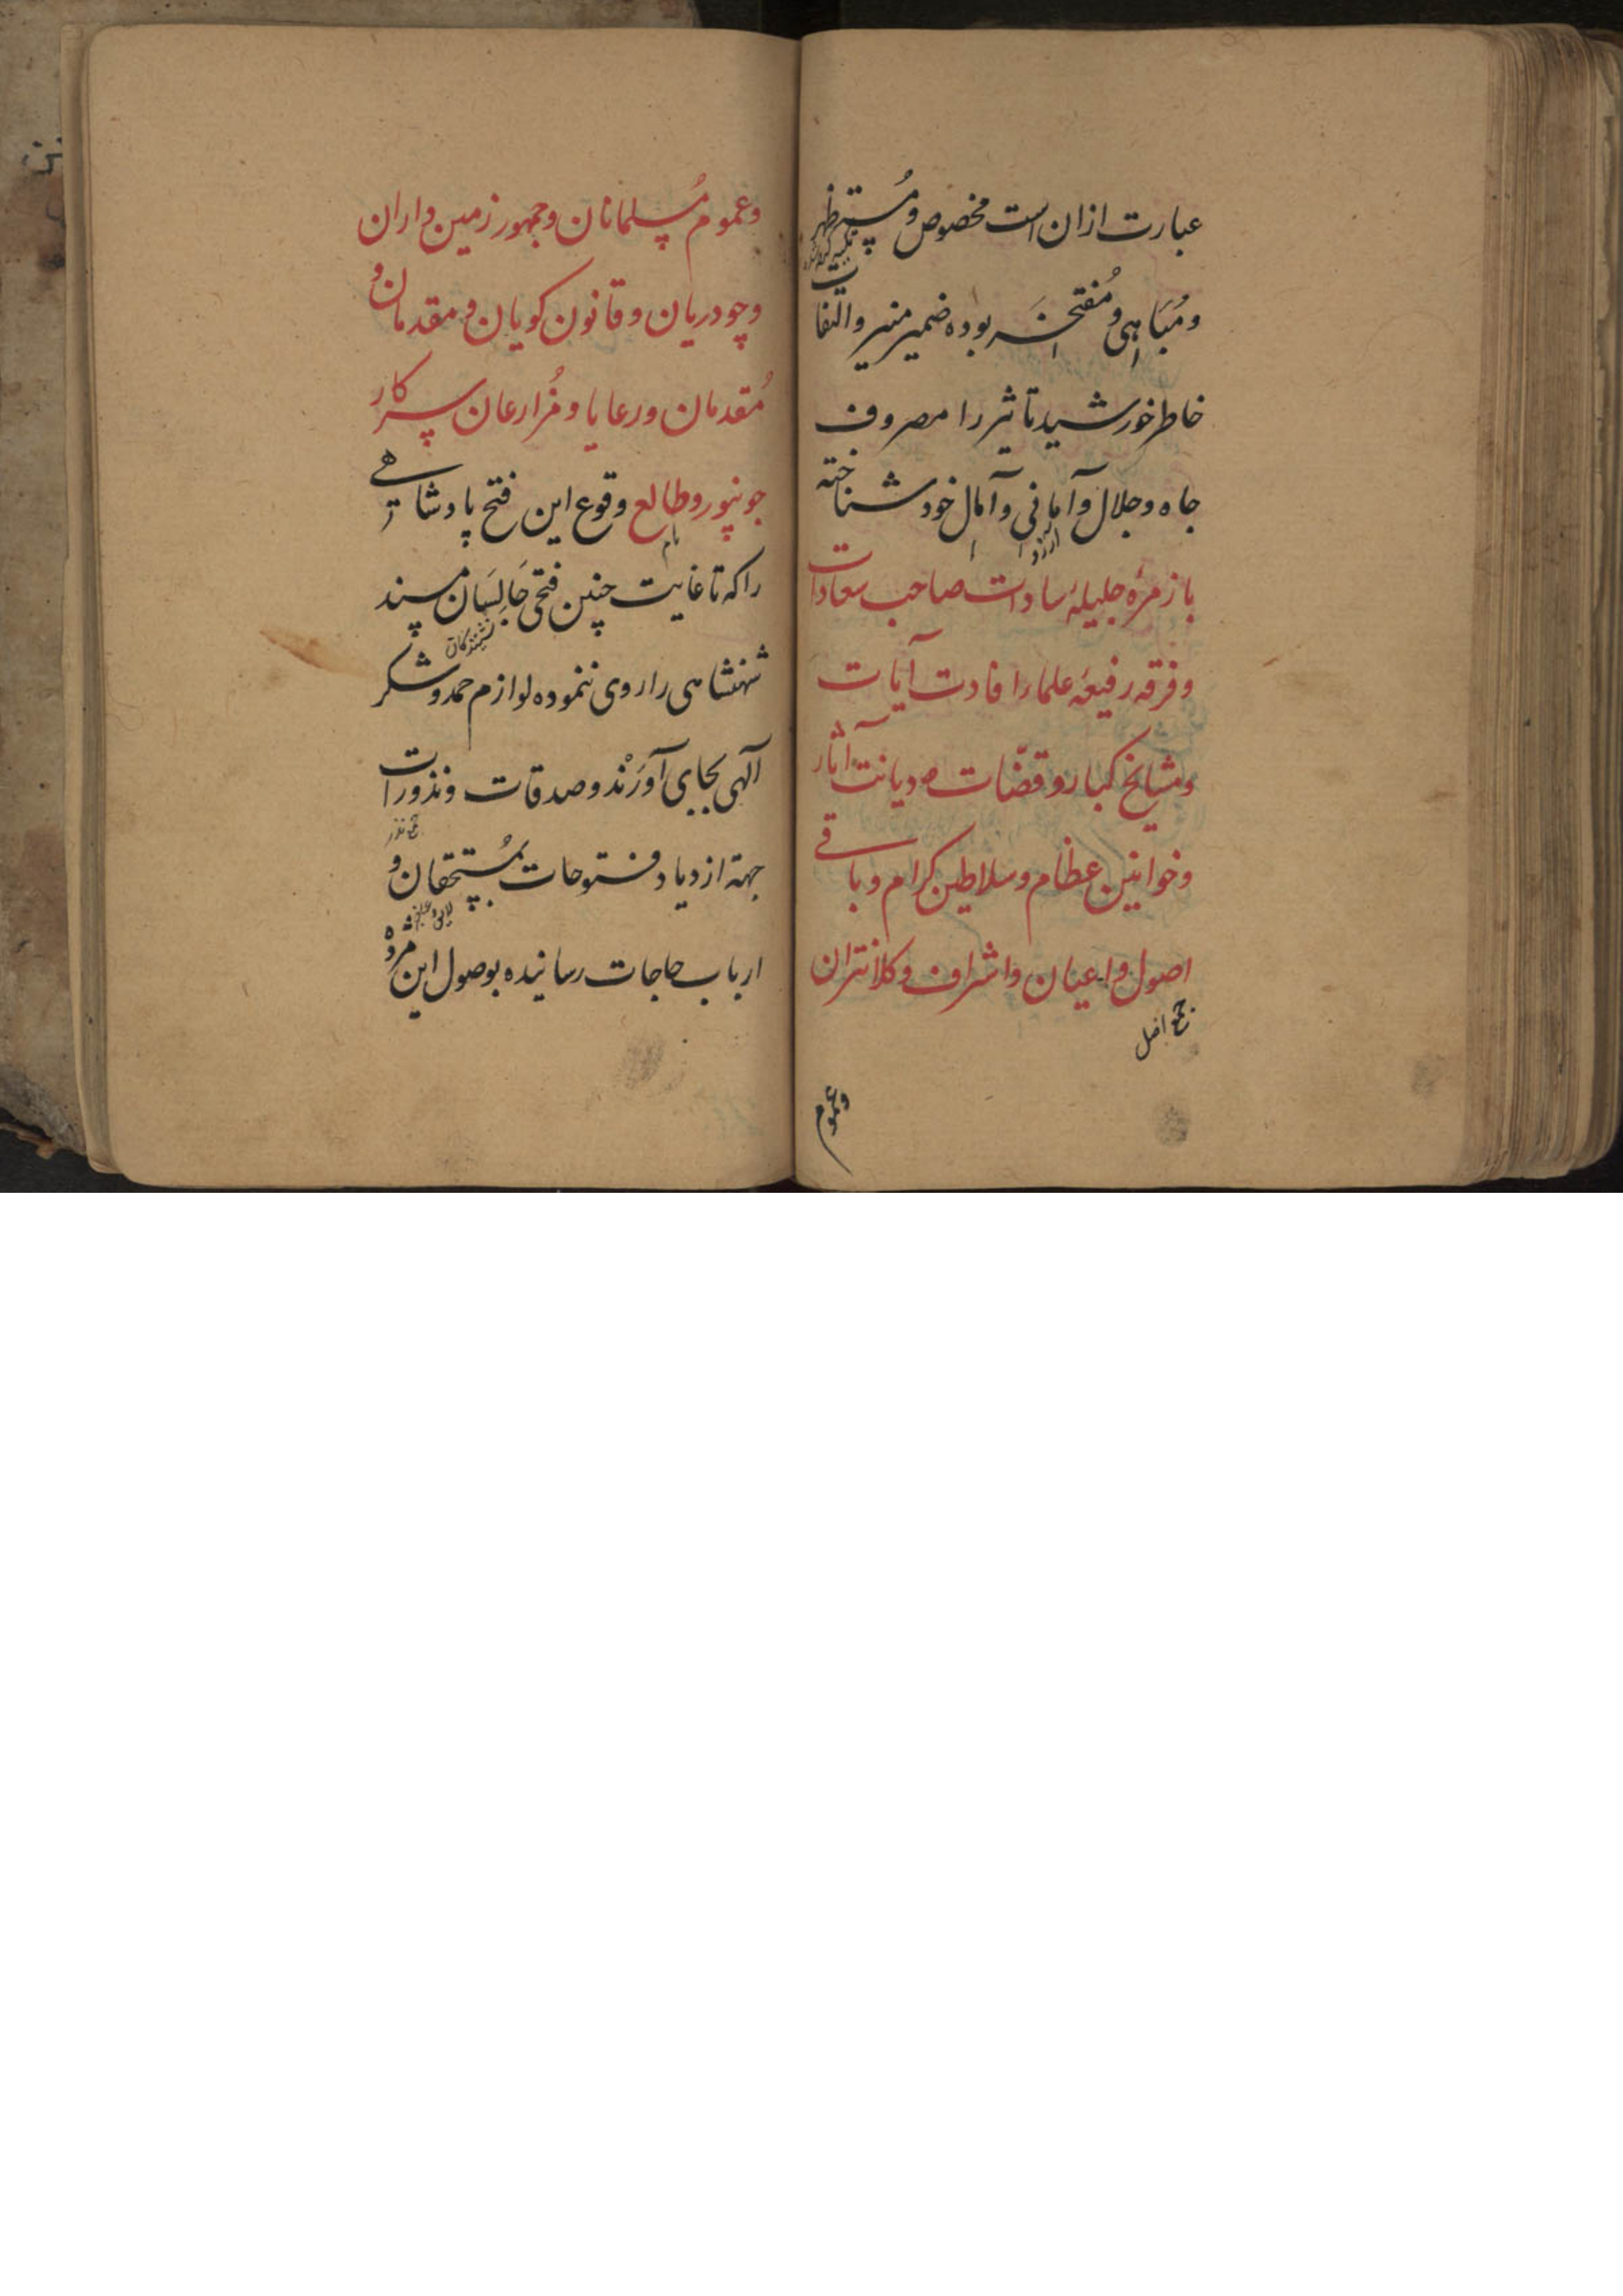 عبارت ازان است مخصوص و مُستظهر
و مُبَاهی و مُفتخَر بوده ضمیر منیر و التفات
خاطر خورشید تاثیر را مصروف
جاه و جلال و آمانی و آمال خود شناخته
با زمرهٔ جلیلهٔ سادات صاحب سعادات
و فرقه رفیعهٔ علما را افادت آیات
و مشایخ کبار و قضّات دیانت آثار
و خوانین عظام و سلاطین کرام و باقے
اصول و اعیان و اشراف و کلانتران
جمع اصل
وعموم
وعموم مُسلمانان و جمهور زمین داران
و چودریان و قانون کویان و مقدمان و
مُقدمان و رعایا و مُزارعان سرکار
جونپور و طالع وقوع این فتح پادشاهے
را که تا غایت چنین فتحی جَالِسَان مسند
نشینندکان
شهنشاهی را روی ننموده لوازم حمد و شکر
آلهی بجای آورَنْد و صدقات و نذورات
جمع نذر
جهة ازدیاد فتوحات بمُستحقان و
ارباب حاجات رسانیده بوصول این مژده